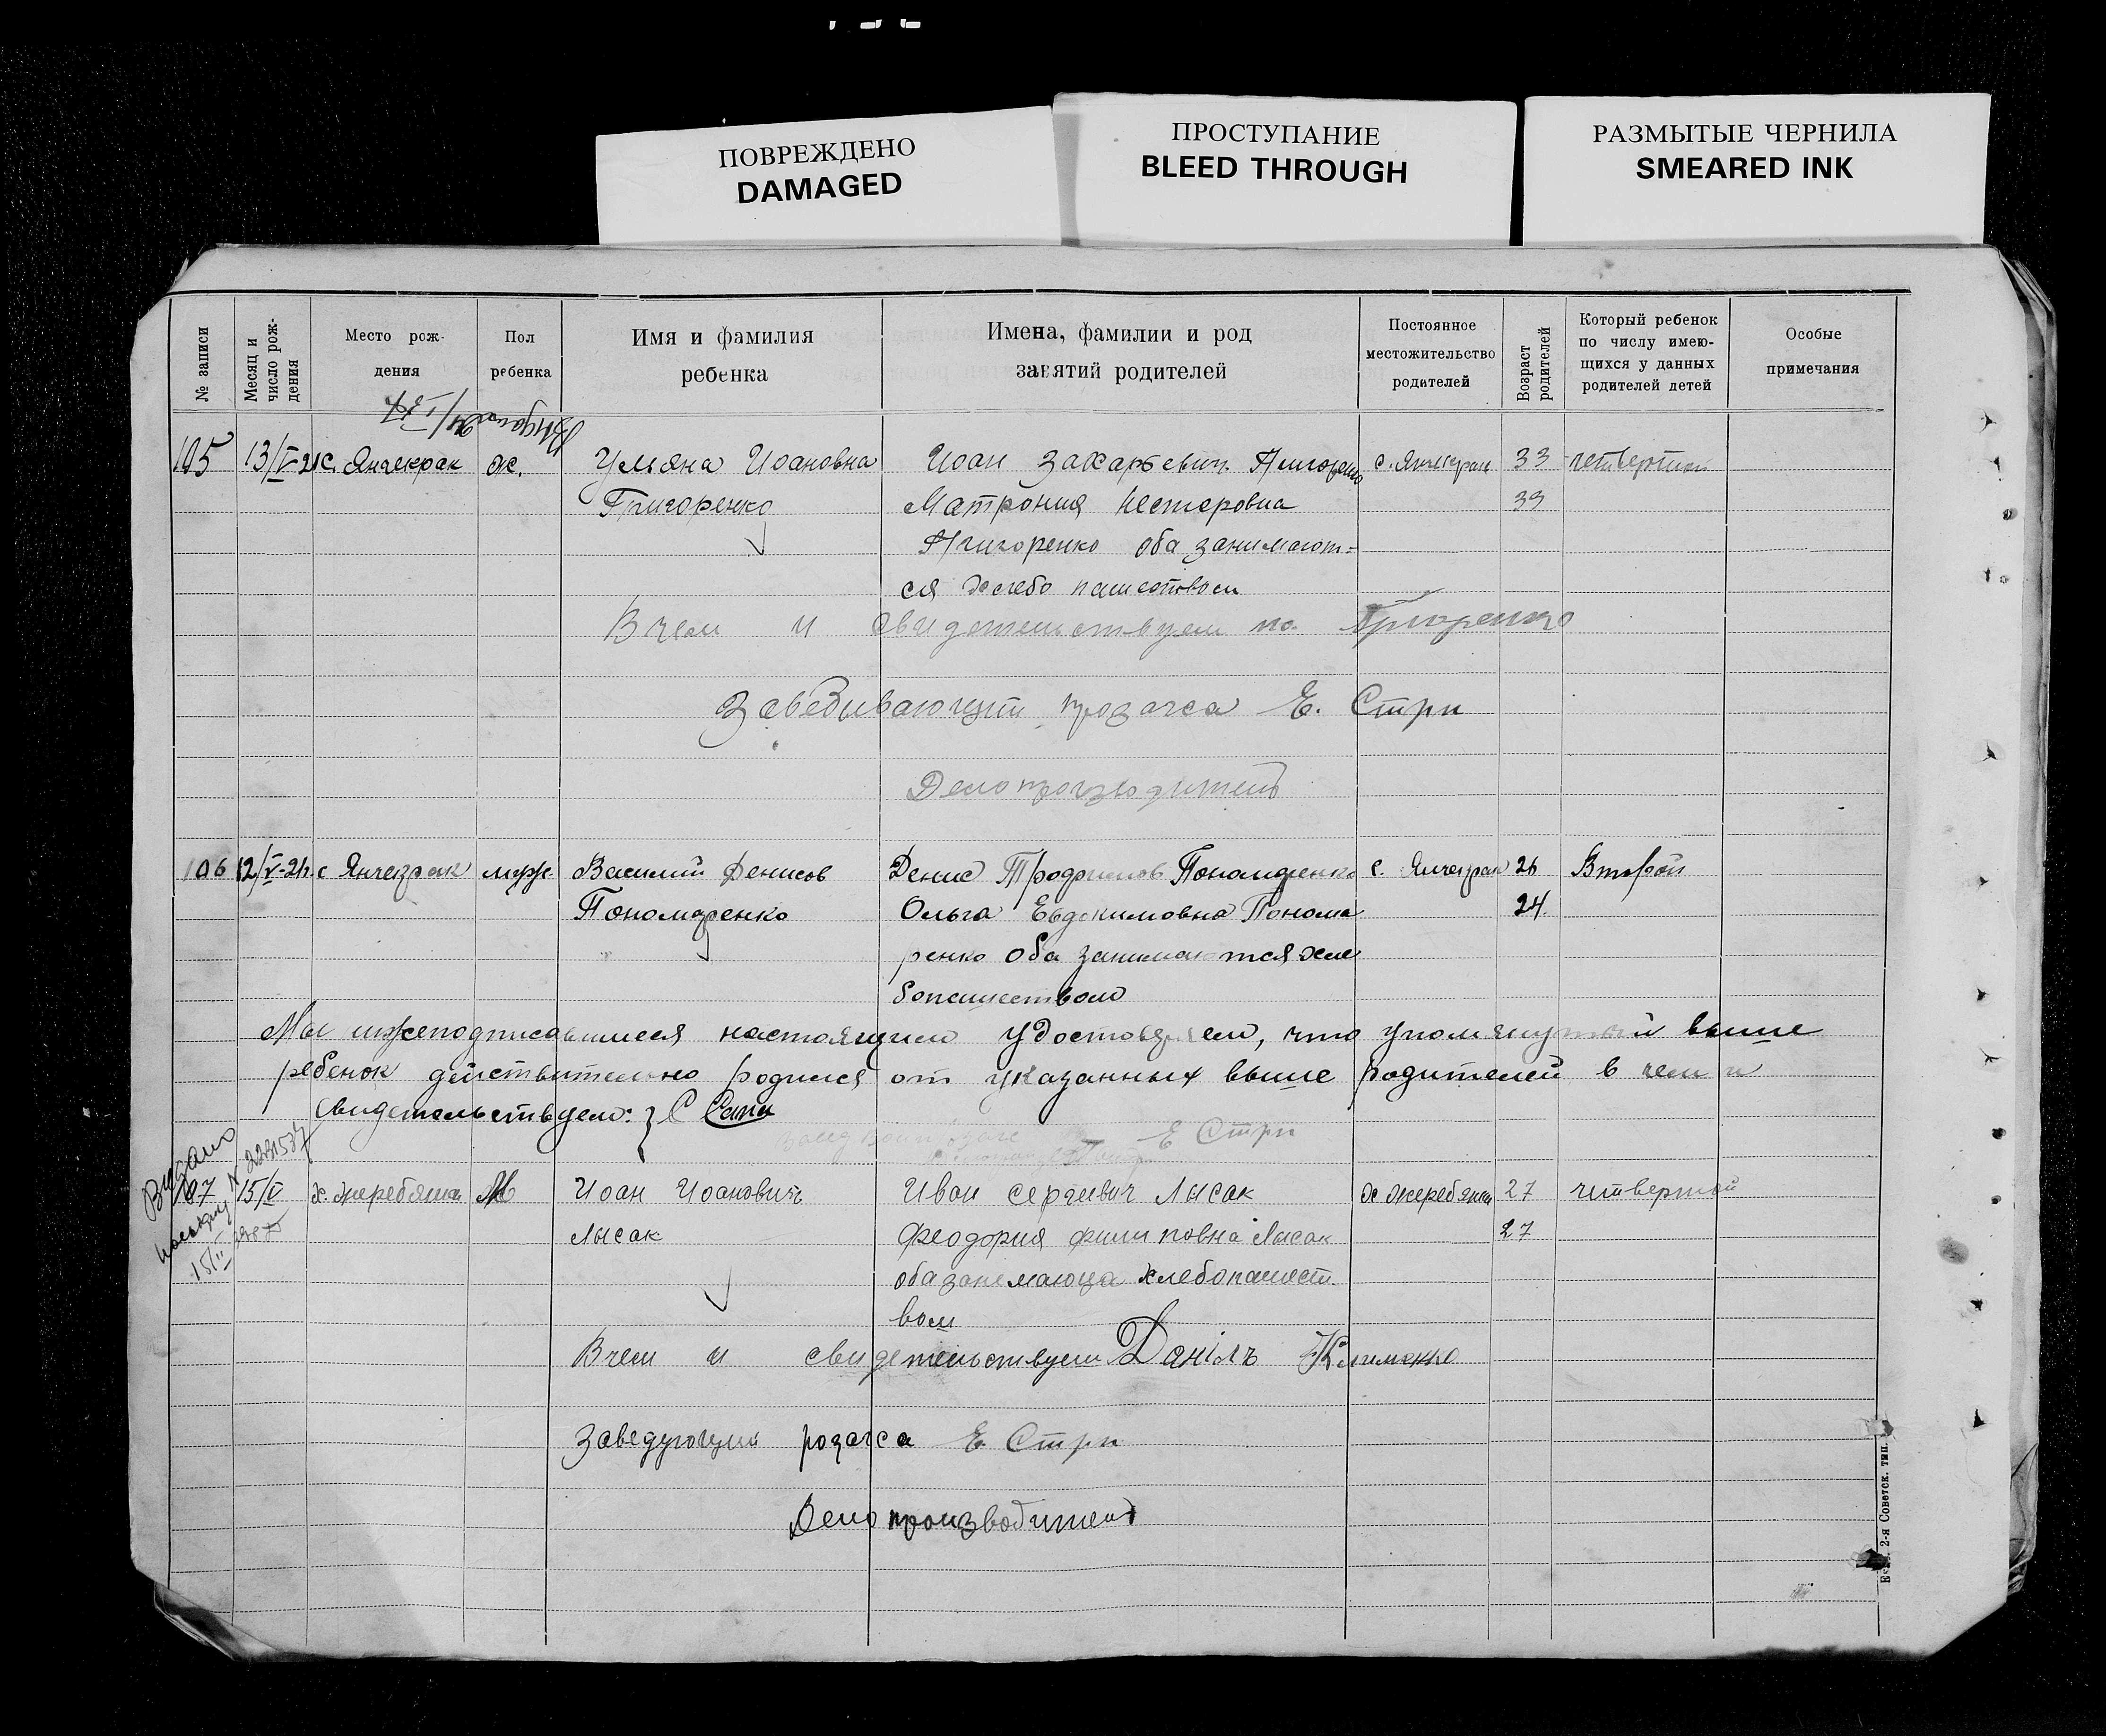 ПОВРЕЖДЕНО
DAMAGED
ПРОСТУПАНИЕ
BLEED THROUGH
РАЗМЫТЫЕ ЧЕРНИЛА
SMEARED INK
№ записи
Месяц и число рож-дения
Место рож-
дения
Пол
ребенка
Имя и фамилия
ребенка
Имена, фамилии и род
занятий родителей
Постоянное
местожительство
родителей
Возраст родителей
Который ребенок
по числу имею-
щихся у данных
родителей детей
Особые
примечания
105 13/V-21 с. Янчекрак ж. Ульяна Иоановна Иоан Захарьевич Григоренко с. Янчекрак 33 четвертый
Григоренко Матрония Нестеровна 33
Григоренко оба занимают=
ся хлебопашеством
В чем и свидетельствуем Григоренко
Заведывающий Е. Стри
Делопроизводитель
106 12/V-21г. с Янчекрак муж. Василий Денисов Денис Трофимов Пономаренко с. Янчекрак 26 Второй
Пономаренко Ольга Евдокимовна Понома 24.
ренко Оба занимаются хле
бопашеством
Мы нижеподписавшиеся настоящим удостоверяем, что упомянутый выше
ребенок действительно родился от указанных выше родителей в чем и
свидетельствуем:
Е Стри
Видано
107 15/V х. жеребяща М Иоан Иоанович Иван Сергиевич Лысак 27 читвертой
Лысак Феодория филиповна Лысак 27
оба занемаюца хлебопашест
вом
В чем и свидетельствуем Данілъ Клименко
Заведующий розагса Е. Стри
Делопроизводитель
2-я Советск. тип.